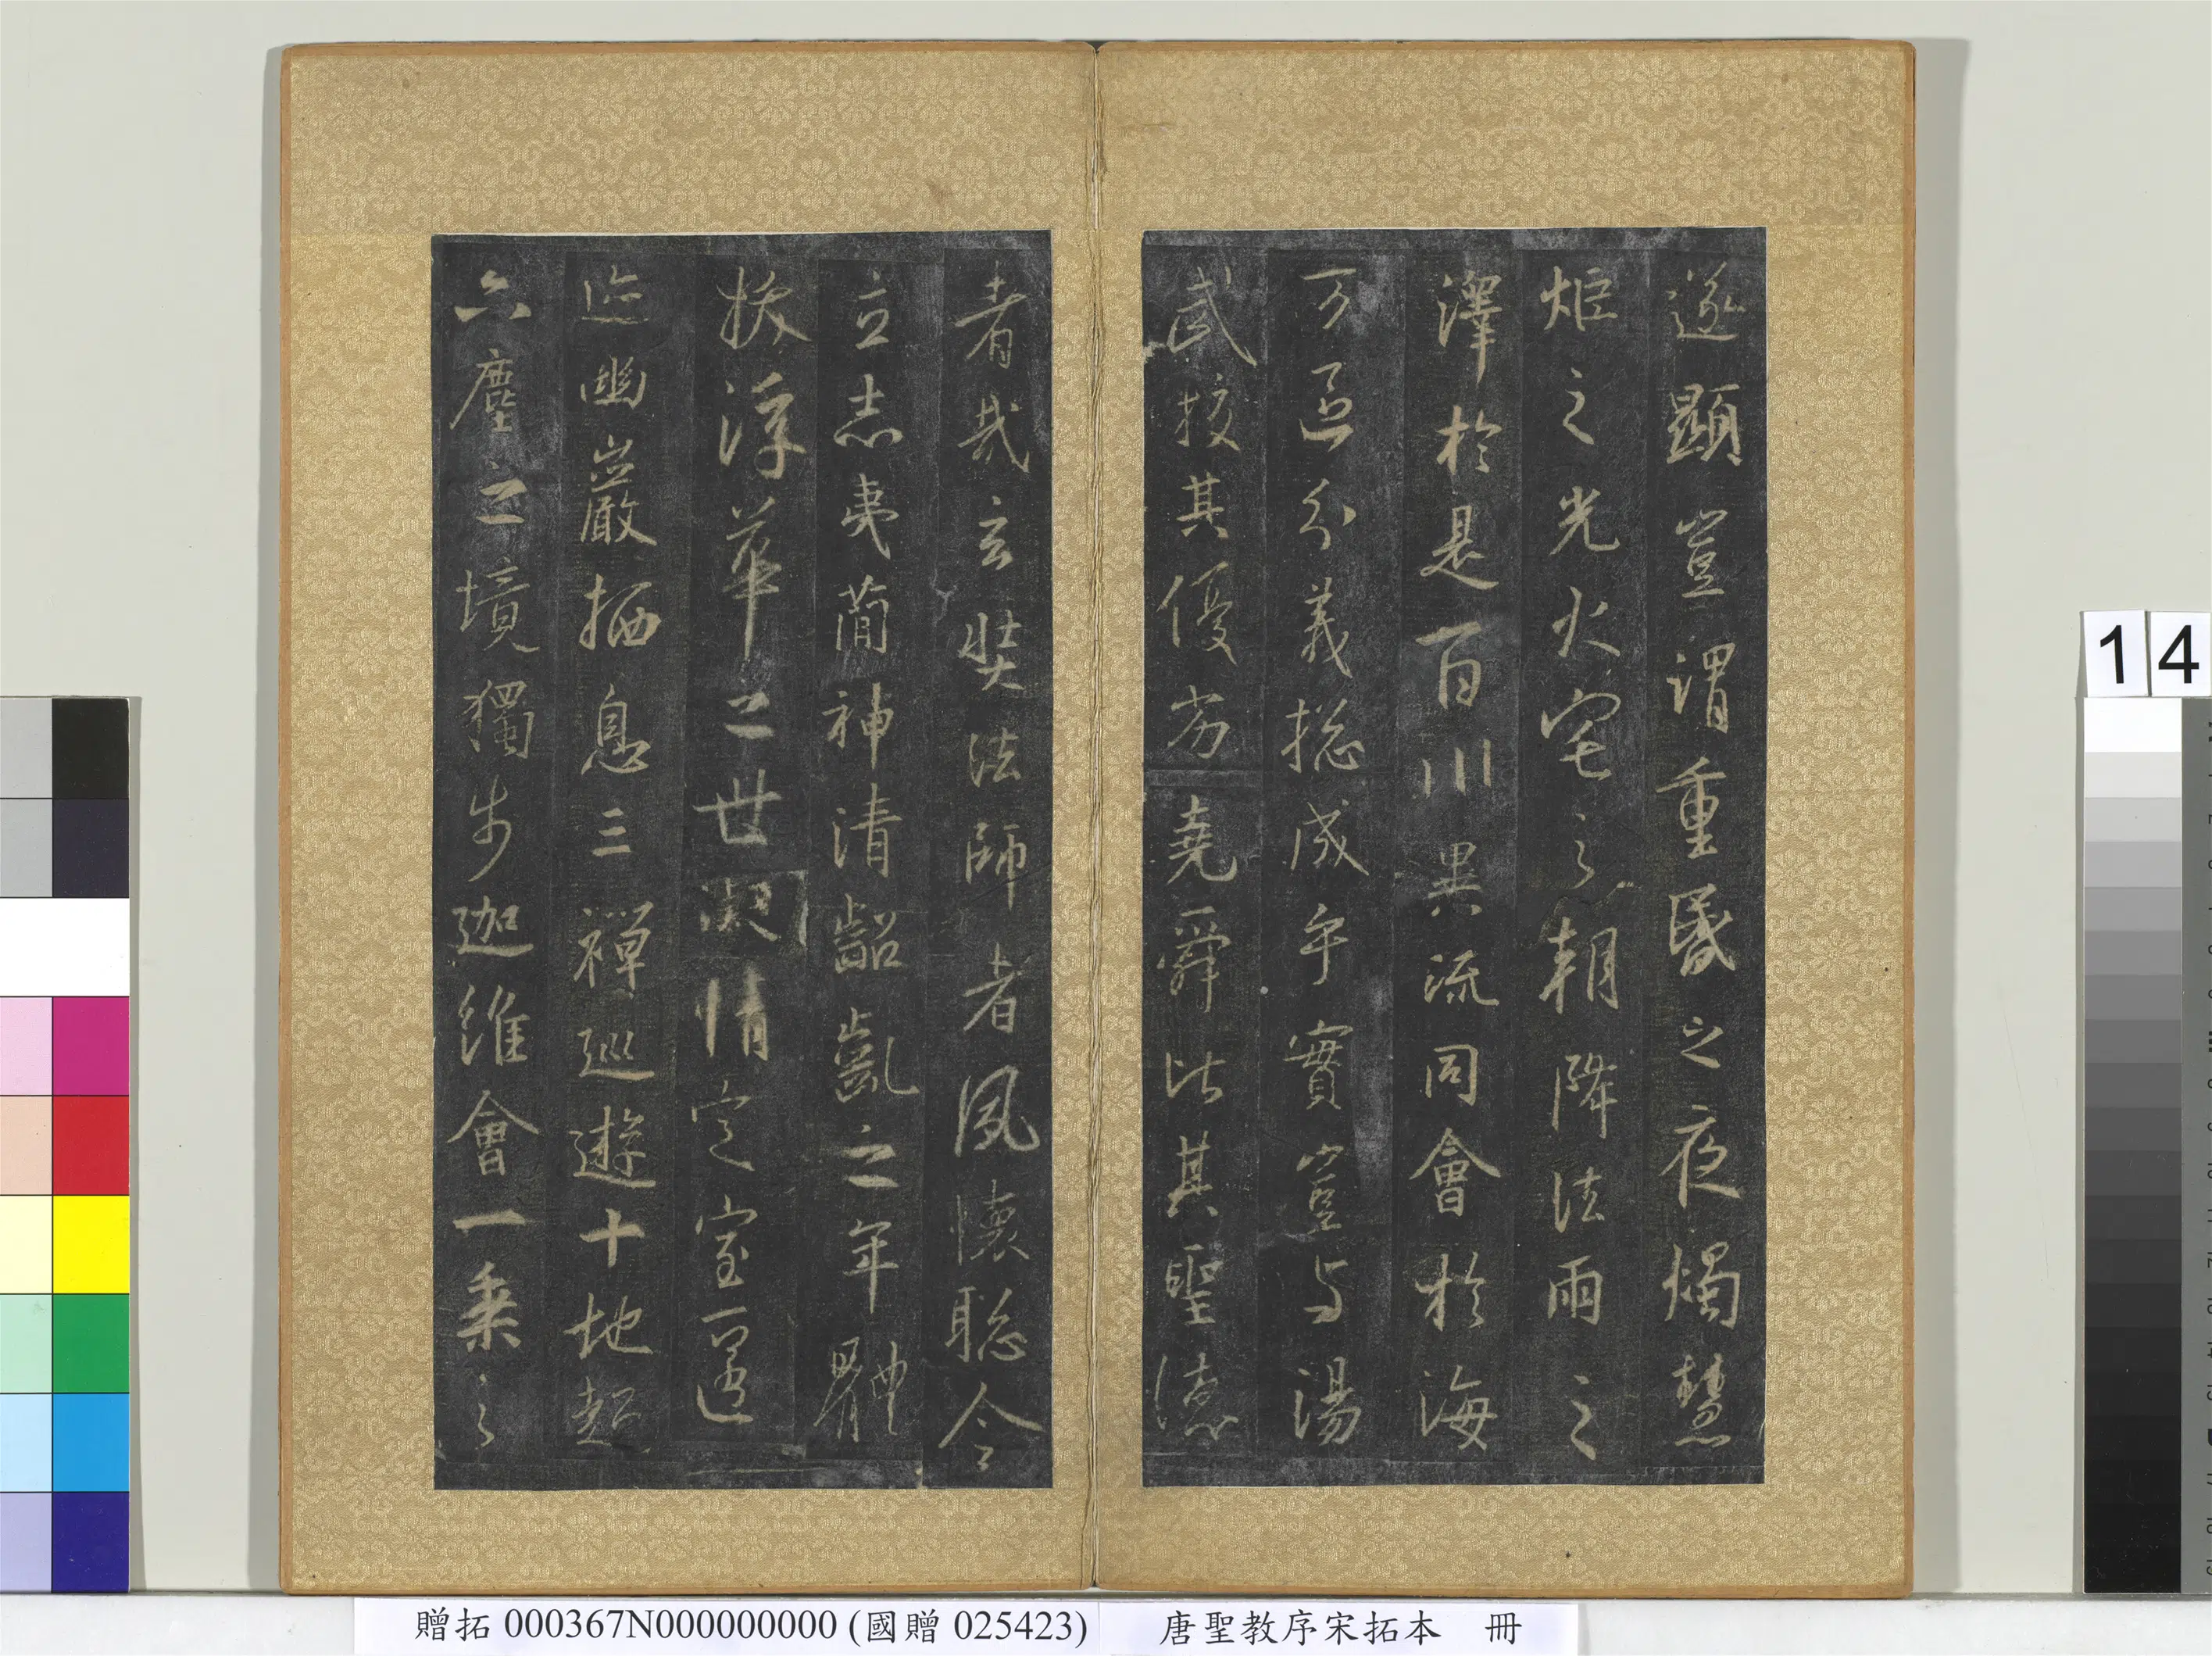 遂顯豈謂重昏之夜燭慧
炬之光火宅之朝降法雨之
澤於是百川異流同會於海
万區分義揔成乎實豈与湯
武校其優劣堯舜比其聖德
者哉玄奘法師者夙懷聡令
立志夷蕳神清齠齔之年體
拔浮華之世凝情定室匿
迹幽巖栖息三禪巡遊十地超
六塵之境獨步迦維會一乘之
14
贈拓 000367N000000000 (國贈 025423) 唐聖教序宋拓本 冊